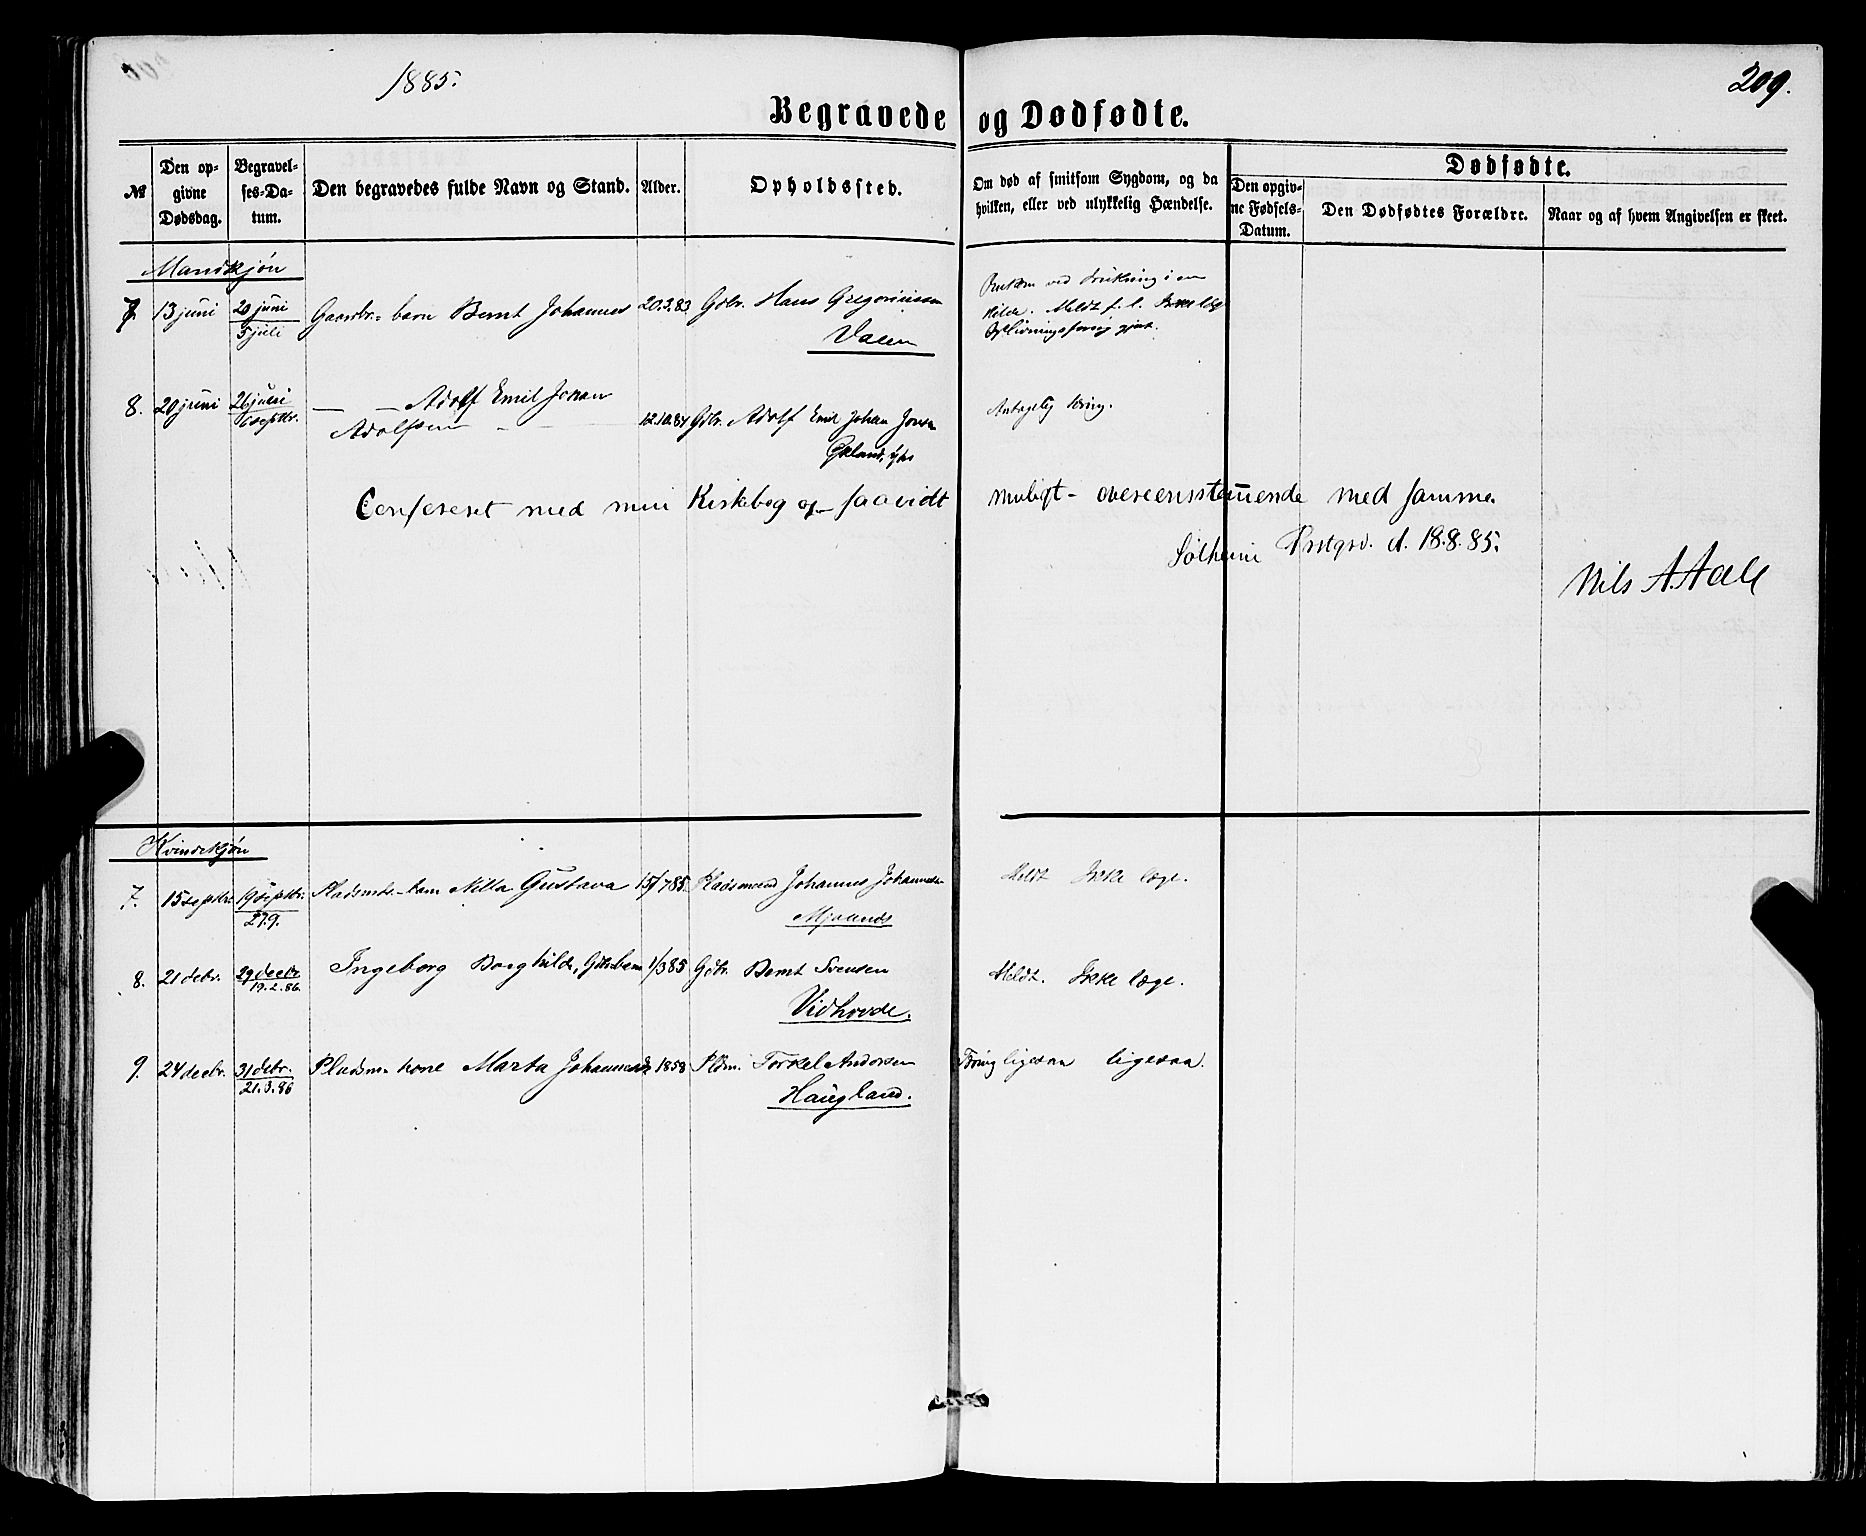 1885.
209.
Begravede og Dødfødte.
№
Den opgivne Dødsdag.
Begravelses-Datum.
Den begravedes fulde Navn og Stand.
Alder.
Opholdssted.
Om død af smitsom Sygdom, og da hvilken, eller ved ulykkelig Hændelse.
Dødfødte.
Den opgivne Fødsels-Datum.
Den Dødfødtes Forældre.
Naar og af hvem Angivelsen er skeet.
Mandkjøn
7. 13 juni 20 juni Gaardbr.- barn Bernt Johannes 20.3.83 Gdbr. Hans Gregoriussen
5 juli
Valen
ved drukning i en
Kilde. Meldt f. l. Ikke læge
Oplivningsforsøg gjort.
8. 20 juni 26 juni — — Adolf Emil Johan
6 septbr. Adolfsen 12.10.84 Gdbr. Adolf Emil Johan Jonsen
Økland, ytre
Antagelig tæring.
Confereret med min Kirkebog og – saavidt muligt – overensstemmende med samme.
Solheim Prstgrd. d. 18.8.85.
Nils A. Aall
Kvindekjøn
7. 15 septbr. 19 septbr. Pladsmds-barn Nilla Gustava 15/7 85. Pladsmand Johannes Johannesen
27.9.
Mjaanæs
Meldt Ikke læge.
8. 21 debr. 29 decbr. Ingeborg Borghilde, Gdbr.barn 1/3 85 Gdbr. Bernt Svensen
19.2.86.
Vidhovde.
Meldt. Ikke læge.
9. 24 decbr. 31 debr. Pladsm. kone Marta Johannesdr. 1858 Pldm. Torkel Andersen
21.3.86
Haugland.
Tæring ligesaa ligesaa.